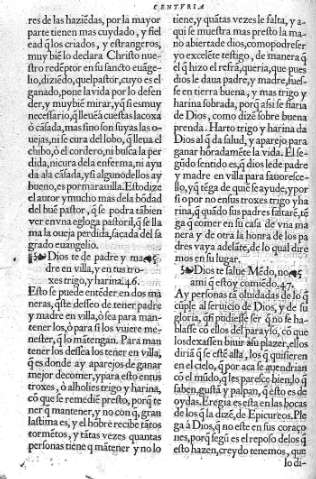 CENTVRIA
res de las haziẽdas, por la mayor
parte tienen mas cuydado, y fiel
ead q̃ los criados, y estrangeros,
muy biẽ lo declara Christo nue
stro redẽptor en su sancto euãge-
lio, diziẽdo, quel pastor, cuyo es el
ganado, pone la vida por lo defen
der, y muy biẽ mirar, y q̃ si es muy
necessario, q̃ lleue a cuestas la coxa
ò cãsada, mas sino son suyas las o-
uejas, ni se cura del lobo, q̃ lleua el
chibo, ò el cordero, ni busca la per
dida, ni cura de la enferma, ni ayu
da a la cãsada, y si alguno dellos ay
bueno, es por marauilla. Esto dize
el autor y mucho mas de la bõdad
del buẽ pastor, q̃ se podra tãbien
ver en vna egloga pastoril, q̃ se lla
ma la oueja perdida, sacada del sa
grado euangelio.
Dios te de padre y ma
dre en villa, y en tus tro
xes trigo, y harina. 46.
Esto se puede entẽder en dos ma
neras, q̃ste desseo de tener padre
y madre en villa, ò sea para man-
tenerlos, ò para si los vuiere me-
nester, q̃ lo mãtengan. Para man
tener los dessea los tener en villa,
q̃ es donde ay aparejos de ganar
mejor de comer, y para esto en tus
troxes, ò alholies trigo y harina,
cõ que se remedie presto, porq̃ te
ner q̃ mantener, y no con q̃, gran
lastima es, y el hõbre recibe tãtos
tormẽtos, y tãtas vezes quantas
personas tiene q̃ mãtener y no lo
tiene, y quãtas vezes le falta, y a-
qui se muestra mas presto la ma-
no abierta de dios, como podrẽ ser
yo excelẽte testigo, de manera q̃
el q̃ hizo el refrã, queria, que pues
dios le daua padre, y madre, fues-
se en tierra buena, y mas trigo y
harina sobrada, porq̃ assi se fiaria
de Dios, como dizẽ sobre buena
prenda. Harto trigo y harina da
Dios al q̃ da salud, y aparejo para
ganar hõradamẽte la vida. El se-
gũdo sentido es, q̃ dios le de padre
y madre en villa para fauoresce-
llo, y q̃ tẽga de que se ayude, y por
si o por no en sus troxes trigo y ha
rina, q̃ quãdo sus padres faltarẽ, tẽ
ga q̃ comer en su casa de vna ma
nera y de otra la honra de los pa
dres vaya adelãte, de lo qual dire
mos en su lugar.
Dios te salue Mẽdo, no
ami q̃ estoy comiẽdo. 47.
Ay personas tã oluidadas de lo q̃
cũple al seruicio de Dios, y de su
gloria, q̃ si pudiesse ser q̃ no se ha-
blasse cõ ellos del parayso, cõ que
los dexassen biuir a su plazer, ellos
diriã q̃ se estẽ alla, los q̃ quisieren
en el cielo, q̃ por aca se auendrian
cõ el mũdo, q̃ les paresce bien, lo q̃
saben, gustã y palpan, q̃ esto es de
oydas. Eregia es esta en las bocas
de los q̃ la dizẽ, de Epicureos. Ple
ga à Dios, q̃ no este en sus coraço
nes, porq̃ segũ es el reposo de los q̃
esto hazen, creydo tenemos, que
lo di-